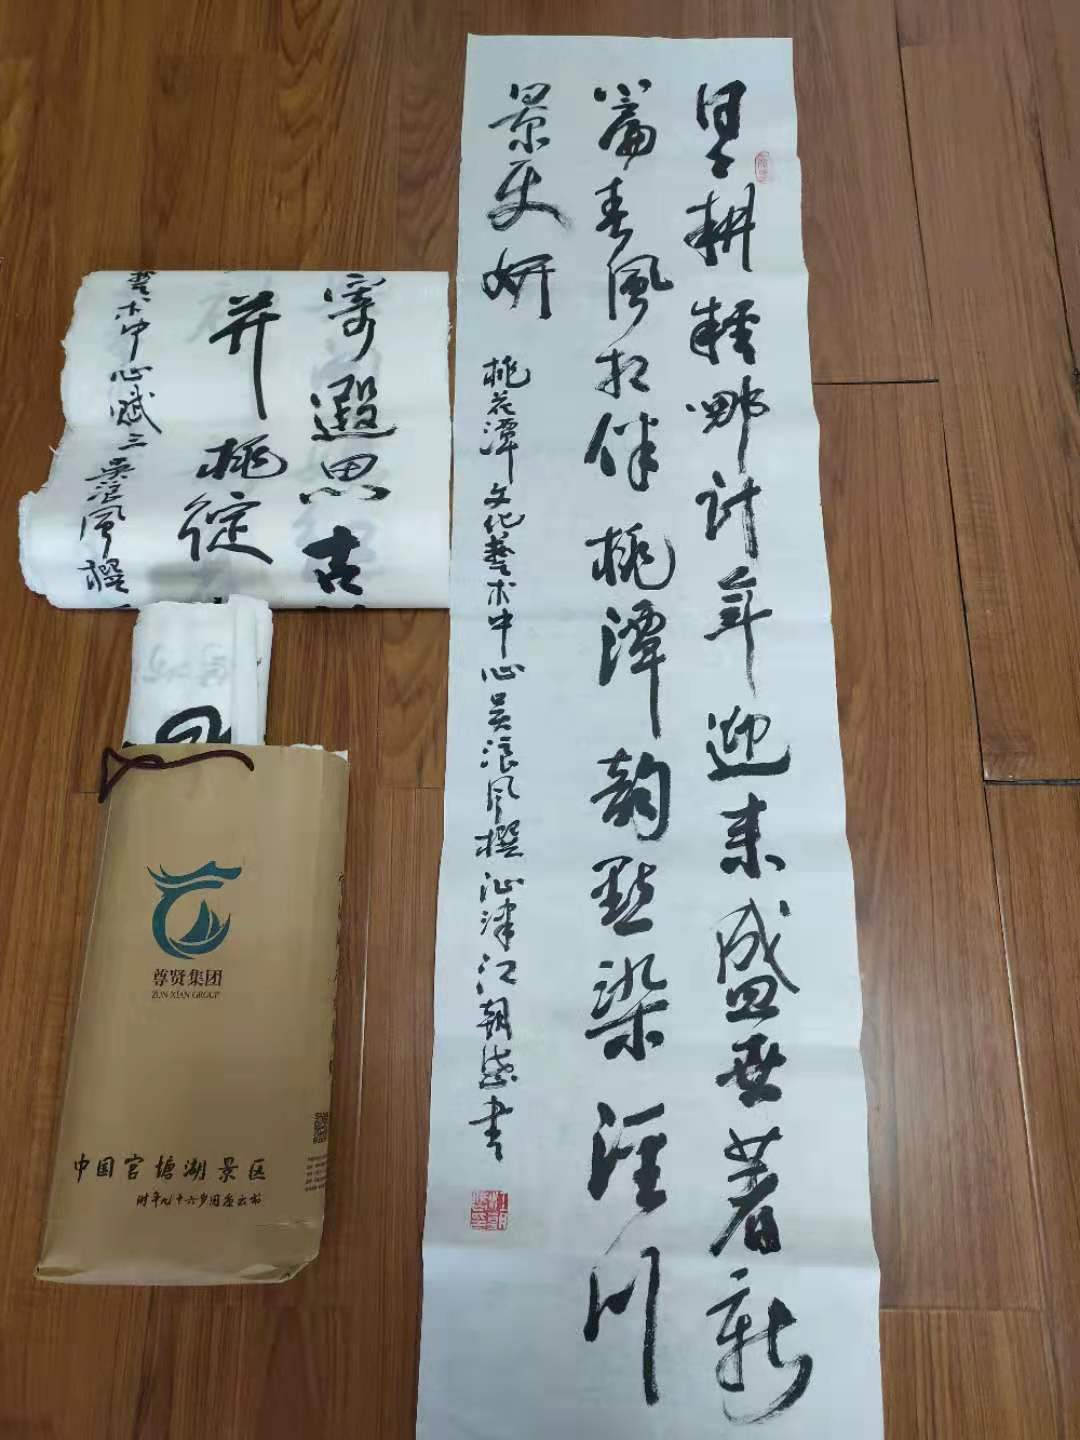 墨耕耘哪计年迎来盛世著新
篇春风相伴桃潭韵點染泾川
景更妍
桃花潭文化藝术中心吴浪风撰沁津江朝盛书
寄遐思古
并桃绽
藝术中心赋三吴浪风撰
尊贤集团
ZUN XIAN GROUP
中国官塘湖景区
时年九十六岁